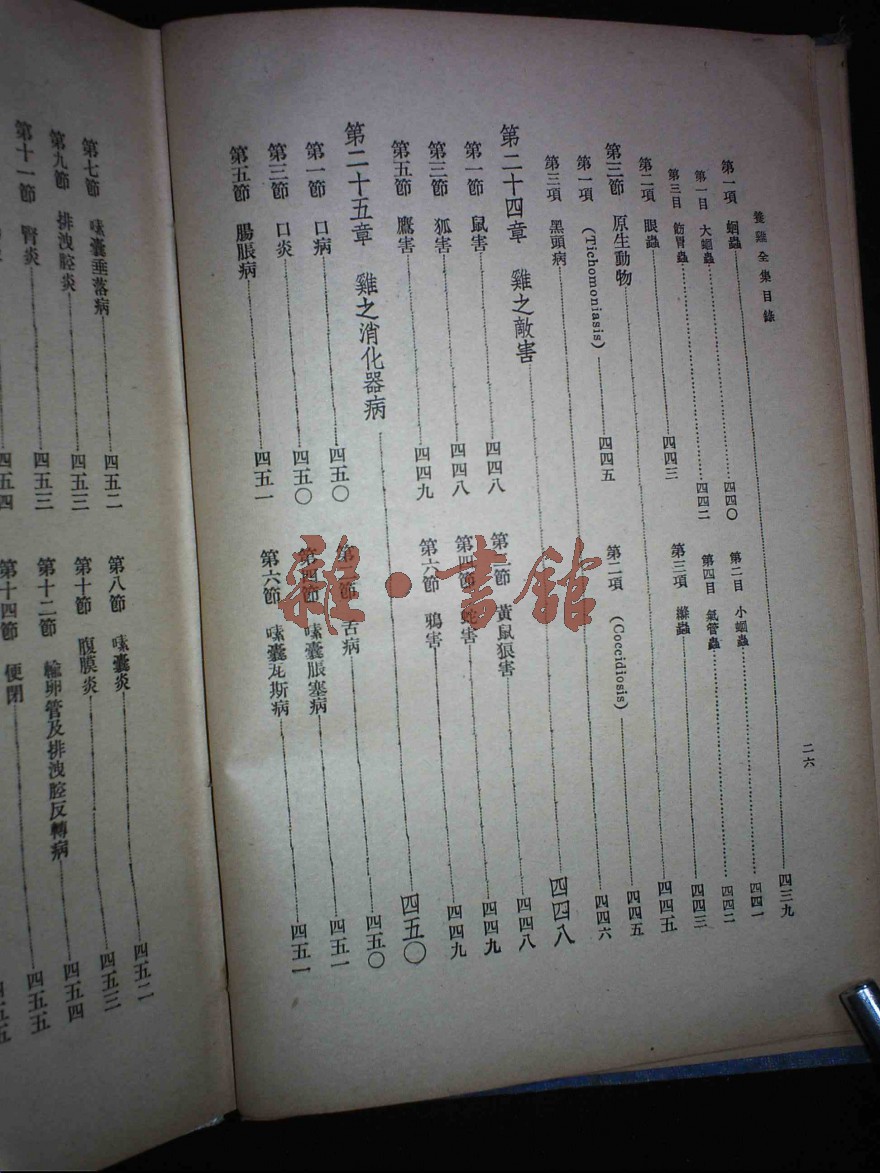 養雞全集目錄 二六
第一項 蛔蟲 四三九
第一目 大蛔蟲 四四〇 第二目 小蛔蟲 四四一
第三目 胃蟲 四四二 第四目 氣管蟲 四四二
第二項 眼蟲 四四三 第三項 絛蟲 四四三
第三節 原生動物 四四五
第一項 (Tichomoniasis) 四四五 第二項 (Coccidiosis) 四四五
第三項 黑頭病 四四六
第二十四章 雞之敵害 四四八
第一節 鼠害 四四八 第二節 黃鼠狼害 四四八
第三節 狐害 四四八 第四節 蛇害 四四九
第五節 鷹害 四四九 第六節 鴉害 四四九
第二十五章 雞之消化器病 四五〇
第一節 口病 四五〇 第二節 舌病 四五〇
第三節 口炎 四五〇 第四節 嗉囊脹塞病 四五一
第五節 腸脹病 四五一 第六節 嗉囊瓦斯病 四五一
第七節 嗉囊垂落病 四五二 第八節 嗉囊炎 四五二
第九節 排洩腔炎 四五三 第十節 腹膜炎 四五三
第十一節 腎炎 四五三 第十二節 輸卵管及排洩腔反轉病 四五四
四五四 第十四節 便閉 四五五
雜·書館